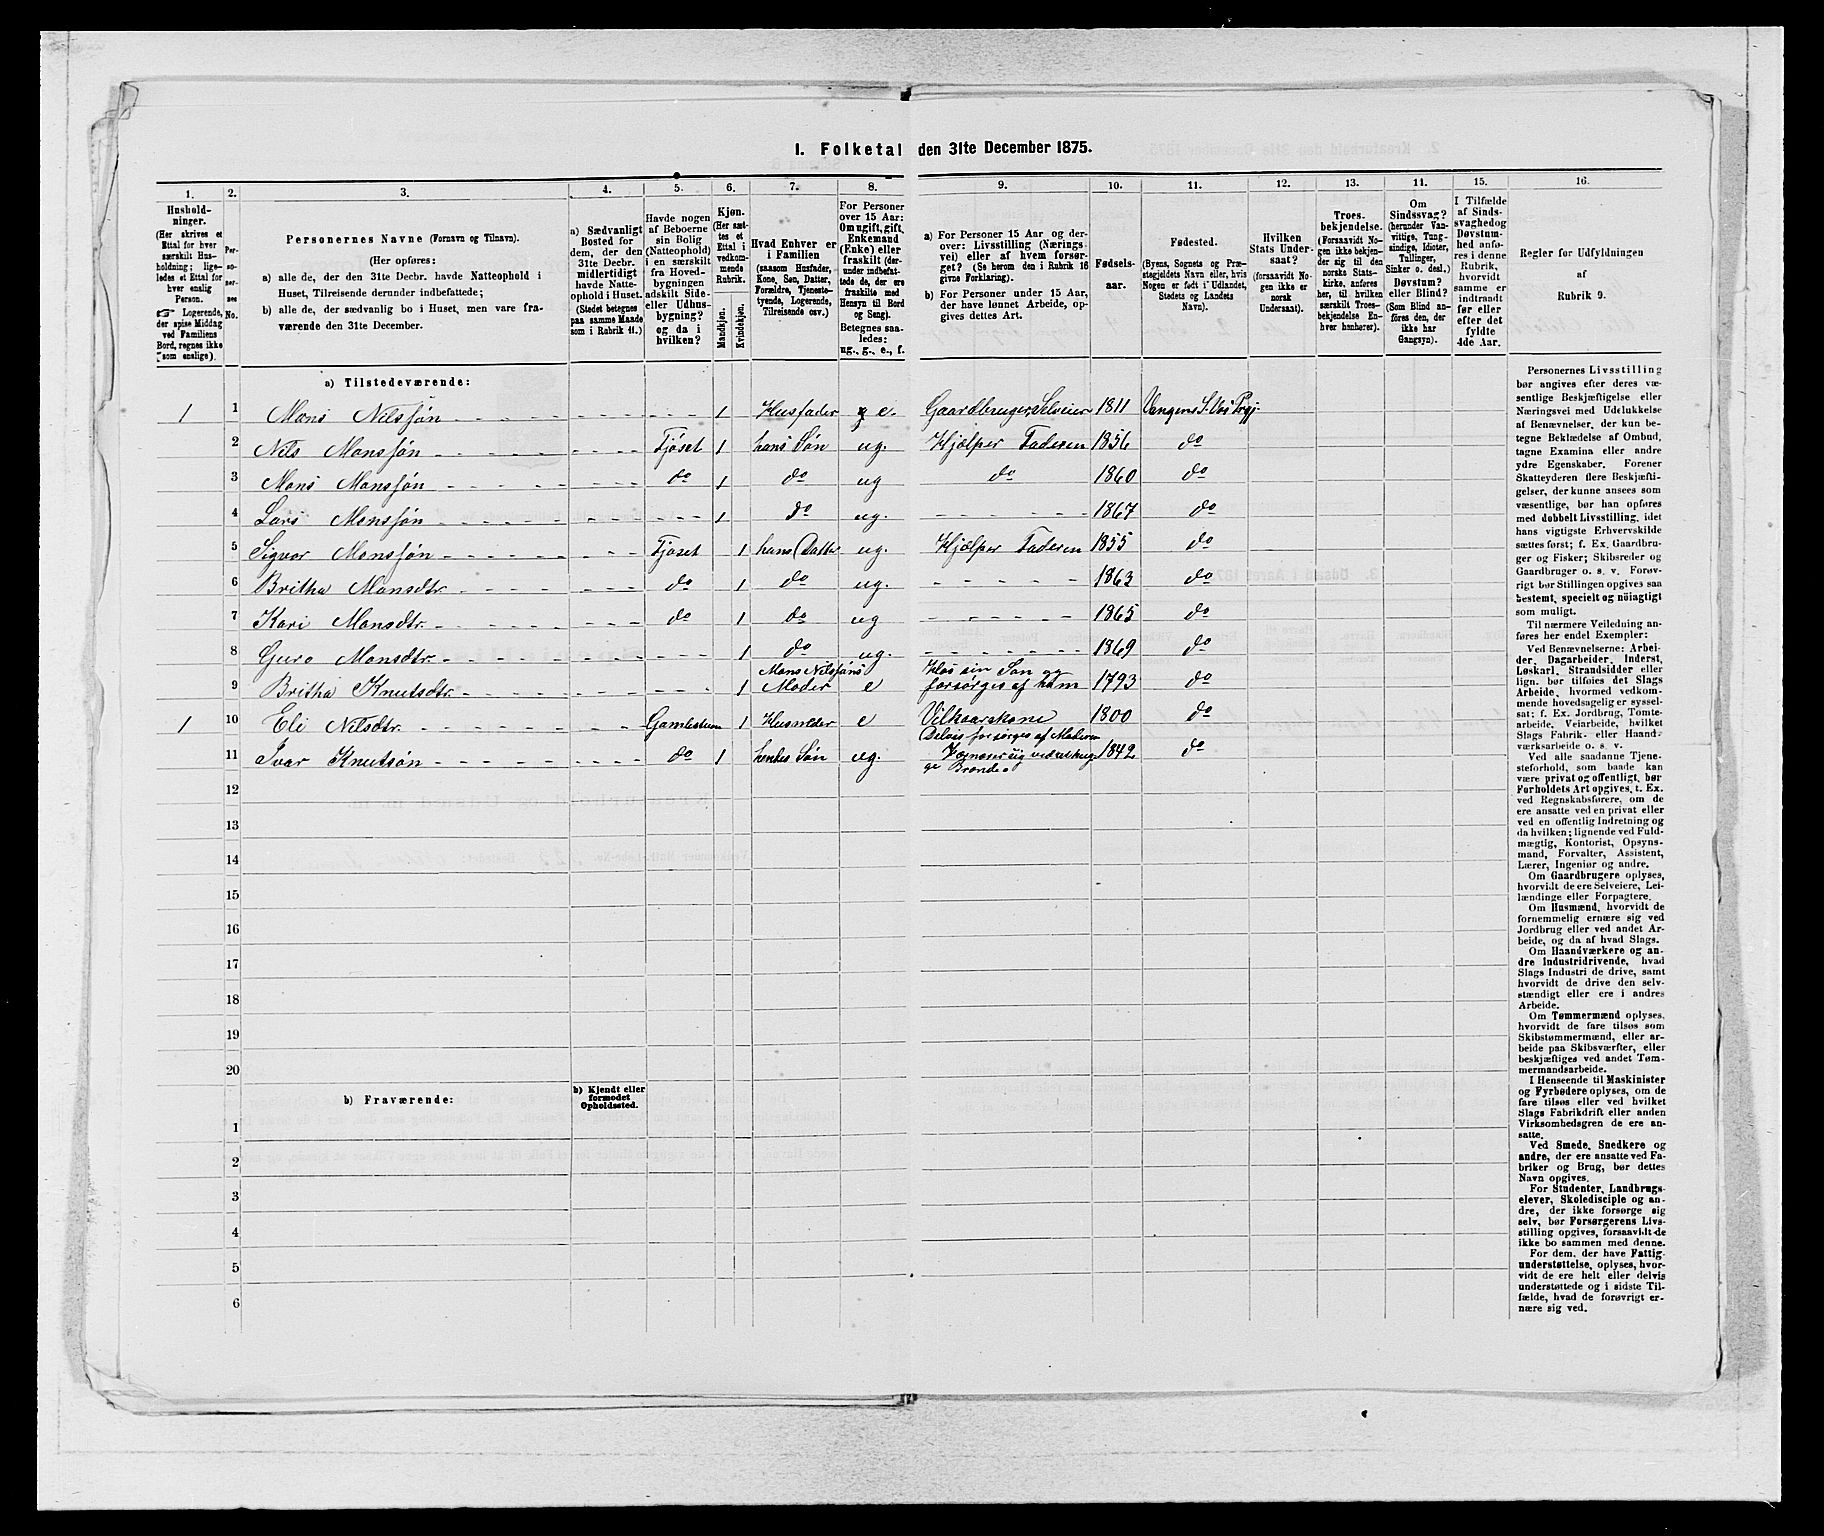 I. Folketal den 31te December 1875.
1. 2. 3. 4. 5. 6. 7. 8. 9. 10. 11. 12. 13. 11. 15. 16.
Hushold-
ninger.
(Her skrives et
Ettal for hver
særskilt Hus-
holdning; lige-
ledes et Ettal for
hver enslig
Person.
☞ Logerende,
der spise Middag
ved Familiens
Bord, regnes ikke
som enslige).
Per-
so-
ner-
nes
No.
Personernes Navne (Fornavn og Tilnavn).
(Her opføres:
a) alle de, der den 31te Decbr. havde Natteophold i
Huset, Tilreisende derunder indbefattede;
b) alle de, der sædvanlig bo i Huset, men vare fra-
værende den 31te December.
a) Sædvanligt
Bosted for
dem, der den
31te Decbr.
midlertidigt
havde Natte-
ophold i Huset.
(Stedet betegnes
paa samme Maade
som i Rubrik 11.)
Havde nogen
af Beboerne
sin Bolig
(Natteophold)
i en særskilt
fra Hoved-
bygningen
adskilt Side-
eller Udhus-
bygning?
og da i
hvilken?
Kjøn.
(Her sæt-
tes et
Ettal i
vedkom-
mende
Rubrik.
Mandkjøn.
Kvindekjøn.
Hvad Enhver er
i Familien
(saasom Husfader,
Kone, Søn, Datter,
Forældre, Tjeneste-
tyende, Logerende,
Tilreisende osv.)
For Personer
over 15 Aar:
Om ugift, gift,
Enkemand
(Enke) eller
fraskilt (der-
under indbefat-
tede de, der ere
fraskilte med
Hensyn til Bord
og Seng).
Betegnes saa-
ledes:
ug., g., e., f.
a) For Personer 15 Aar og der-
over: Livsstilling (Nærings-
vei) eller af hvem forsør-
get? (Se herom den i Rubrik 16
givne Forklaring).
b) For Personer under 15 Aar,
der have lønnet Arbeide, op-
gives dettes Art.
Fødsels-
aar.
Fødested.
(Byens, Sognets og Præ-
stegjeldets Navn eller, hvis
Nogen er født i Udlandet,
Stedets og Landets
Navn).
Hvilken
Stats Under-
saat?
(forsaavidt No-
gen ikke er
norsk
Undersaat).
Troes-
bekjendelse.
(Forsaavidt No-
gen ikke bekjen-
der sig til den
norske Stats-
kirke, anføres
her, til hvilken
særskilt Troes-
bekjendelse En-
hver hanhører).
Om
Sindssvag?
(herunder Van-
vittige, Tung-
sindige, Idioter,
Tullinger,
Sinker o. desl.)
Døvstum?
eller Blind?
(Som Blind an-
føres den, der
ikke har
Gangsyn).
I Tilfælde
af Sinds-
svaghed og
Døvstum-
hed anfø-
res i denne
Rubrik,
hvorvidt
samme er
indtraadt
før eller
efter det
fyldte
4de Aar.
Regler for Udfyldningen
af
Rubrik 9.
a) Tilstedeværende:
1 1 Mons Nilssøn 1 Husfader e. Gaardbruger, Selveier 1811 Vangens S. Vos Prgj.
2 Nils Monssøn Fjøset 1 hans Søn ug. Hjælper Faderen 1856 do
3 Mons Monssøn do 1 do ug do 1860 do
4 Lars Monssøn 1 do ug. 1867 do
5 Sigvor Monssøn Fjøset 1 hans Datter ug. Hjælper Faderen 1855 do
6 Britha Monsdtr. do 1 do ug. 1863 do
7 Kari Monsdtr. do 1 do ug 1865 do
8 Guro Monsdtr. 1 do ug. 1869 do
9 Britha Knutsdtr. 1 Mons Nilssøns Moder e Hos sin Søn og forsørges af ham 1793 do
1 10 Eli Nilsdtr. Gamlestuen 1 Husmoder e Vilkaarskone 1800 do
11 Ivar Knutsøn do 1 hendes Søn ug. Delvis forsørges af Moderen 1842 do
12
13
14
15
16
17
18
19
20
b) Fraværende:
b) Kjendt eller
formodet
Opholdssted.
1
2
3
4
5
6
Personernes Livsstilling
bør angives efter deres væ-
sentlige Beskjæftigelse eller
Næringsvei med Udelukkelse
af Benævnelser, der kun be-
tegne Beklædelse af Ombud,
tagne Examina eller andre
ydre Egenskaber. Forener
Skatteyderen flere Beskjæfti-
gelser, der kunne ansees som
væsentlige, bør han opføres
med dobbelt Livsstilling, idet
hans vigtigste Erhvervskilde
sættes først; f. Ex. Gaardbru-
ger og Fisker; Skibsreder og
Gaardbruger o. s. v. Forøv-
rigt bør Stillingen opgives saa
bestemt, specielt og nöiagtigt
som muligt.
Til nærmere Veiledning an-
føres her endel Exempler:
Ved Benævnelserne: Arbei-
der, Dagarbeider, Inderst,
Løskarl, Strandsidder eller
lign. bør tilføies det Slags
Arbeide, hvormed vedkom-
mende hovedsagelig er syssel-
sat; f. Ex. Jordbrug, Tomte-
arbeide, Veiarbeide, hvilket
Slags Fabrik- eller Haand-
værksarbeide o. s. v.
Ved alle saadanne Tjene-
steforhold, som baade kan
være privat og offentligt, bør
Forholdets Art opgives, t. Ex.
ved Regnskabsførere, om de
ere ansatte ved en privat eller
ved en offentlig Indretning og
da hvilken; lignende ved Fuld-
mægtig, Kontorist, Opsyns-
mand, Forvalter, Assistent,
Lærer, Ingeniør og andre.
Om Gaardbrugere oplyses,
hvorvidt de ere Selveiere, Lei-
lændinge eller Forpagtere.
Om Husmænd, hvorvidt de
fornemmelig ernære sig ved
Jordbrug eller ved andet Ar-
beide, og da af hvad Slags.
Om Haandværkere og an-
dre Industridrivende, hvad
Slags Industri de drive, samt
hvorvidt de drive den selv-
stændigt eller ere i andres
Arbeide.
Om Tømmermænd oplyses,
hvorvidt de fare tilsøs som
Skibstømmermænd, eller ar-
beide paa Skibsværfter, eller
beskjæftiges ved andet Tøm-
mermandsarbeide.
I Henseende til Maskinister
og Fyrbødere oplyses, om de
fare tilsøs eller ved hvilket
Slags Fabrikdrift eller anden
Virksomhedsgren de ere an-
satte.
Ved Smede, Snedkere og
andre, der ere ansatte ved Fa-
briker og Brug, bør dettes
Navn opgives.
For Studenter, Landbrugs-
elever, Skoledisciple og an-
dre, der ikke forsørge sig
selv, bør Forsørgerens Livs-
stilling opgives, forsaavidt de
ikke bo sammen med denne.
For dem, der have Fattig-
understøttelse, oplyses, hvor-
vidt de ere helt eller delvis
understøttede og i sidste Til-
fælde, hvad de forøvrigt er-
nære sig ved.